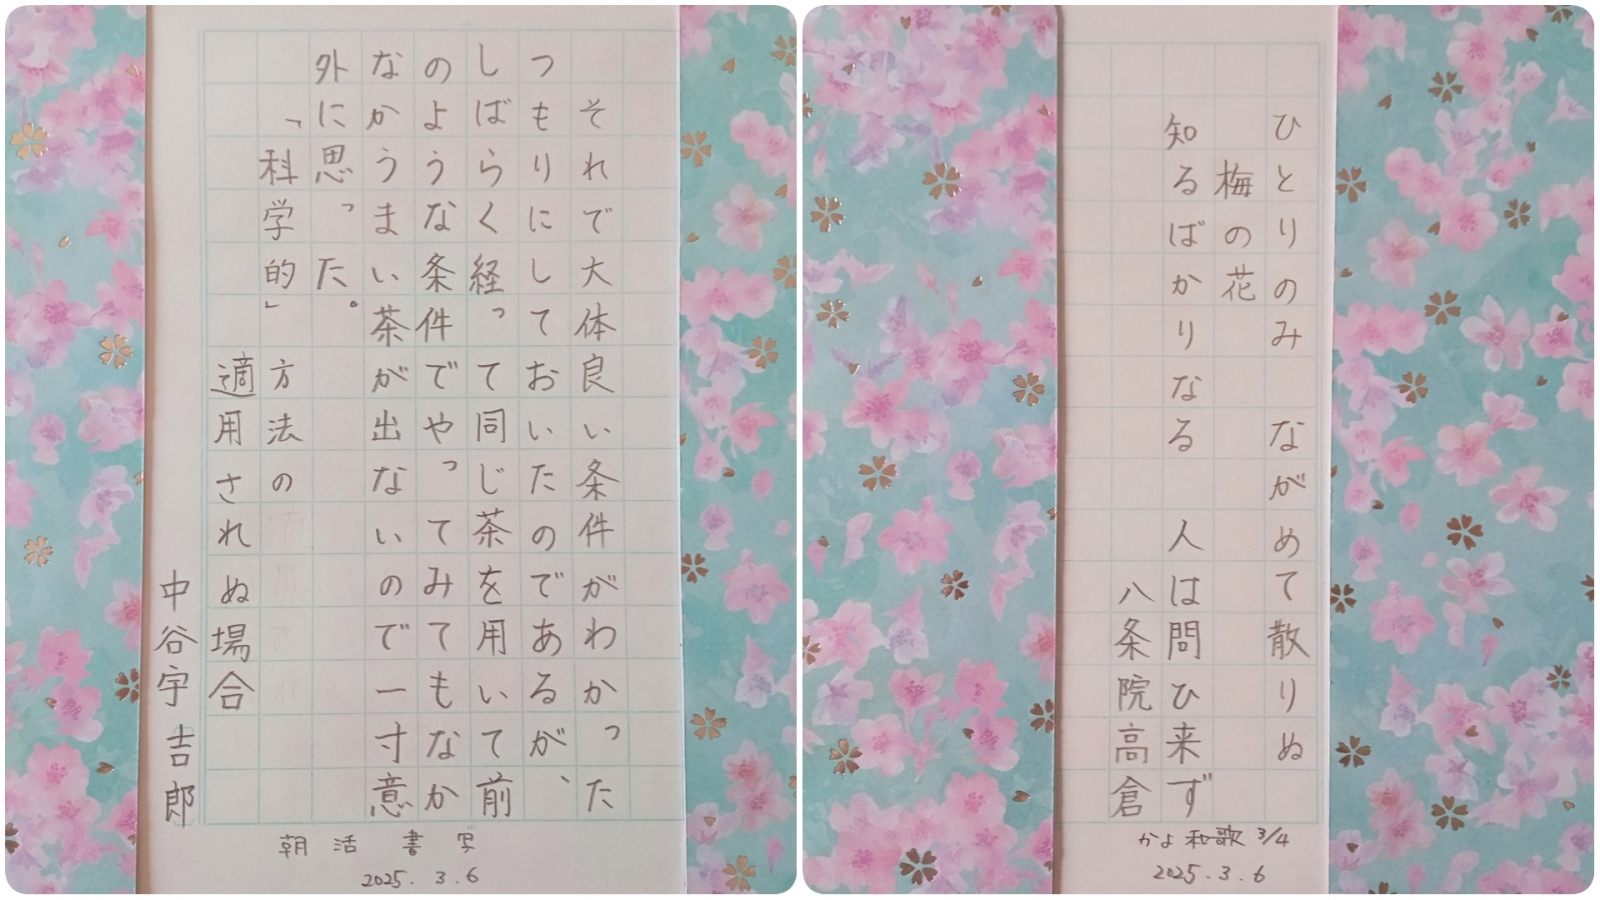 それで大体良い条件がわかった
つもりにしておいたのであるが、
しばらく経って同じ茶を用いて前
のような条件でやってみてもなか
なかうまい茶が出ないので一寸意
外に思った。
「科学的」方法の
適用されぬ場合
中谷宇吉郎
朝活書写
2025.3.6
ひとりのみ ながめて散りぬ
梅の花
知るばかりなる 人は問ひ来ず
八条院高倉
かよ和歌 3/4
2025.3.6